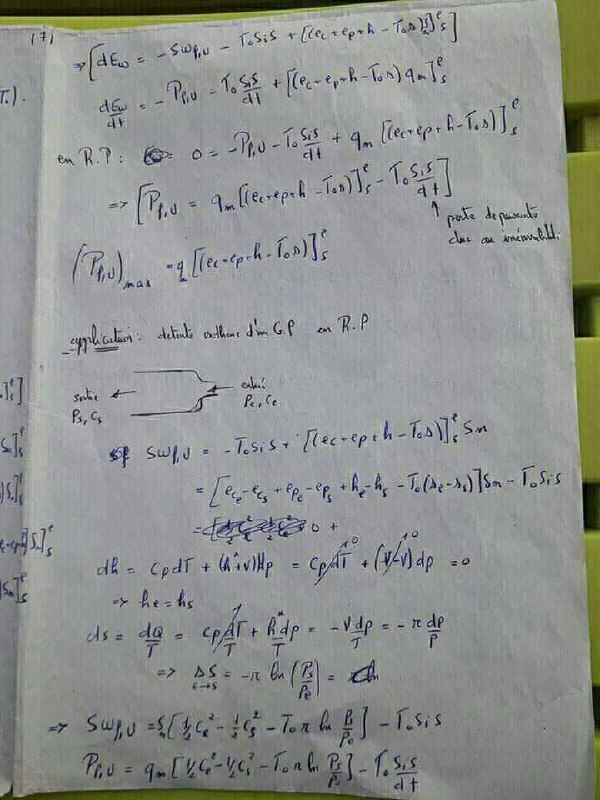 (7)
⇒ [dEω = -δωp,u - T₀Sis + [(ec+ep+h-T₀s)δ]ᵉₛ]
dEω/dt = -Pp,u - T₀ Sis/dt + [(ec+ep+h-T₀s) qm]ᵉₛ
en R.P : 0 = -Pp,u - T₀ Sis/dt + qm [(ec+ep+h-T₀s)]ᵉₛ
⇒ [Pp,u = qm [(ec+ep+h-T₀s)]ᵉₛ - T₀ Sis/dt]
↑ perte de puissance
due au irréversibl.
(Pp,u)max = qm [(ec+ep+h-T₀s)]ᵉₛ
application : détente isotherme d'un GP en R.P
sortie ← ← entrée
Ps, Cs Pe, Ce
Sωp,u = -T₀Sis + [(ec+ep+h-T₀s)]ᵉₛ Sm
= [ece-ecs + epe-eps + he-hs - T₀(se-ss)] Sm - T₀Sis
0 +
dh = CpdT + (h*+v)dp = CpdT + (v-v)dp = 0
⇒ he = hs
ds = dQ/T = CpdT/T + h*dp/T = -Vdp/T = -r dp/P
⇒ Δs e→s = -r ln(Ps/Pe) =
⇒ Sωp,u = Sm[½Ce² - ½Cs² - T₀ r ln Ps/Pe] - T₀Sis
Pp,u = qm [½Ce² - ½Cs² - T₀ r ln Ps/Pe] - T₀ Sis/dt
T.).
]ᵉₛ